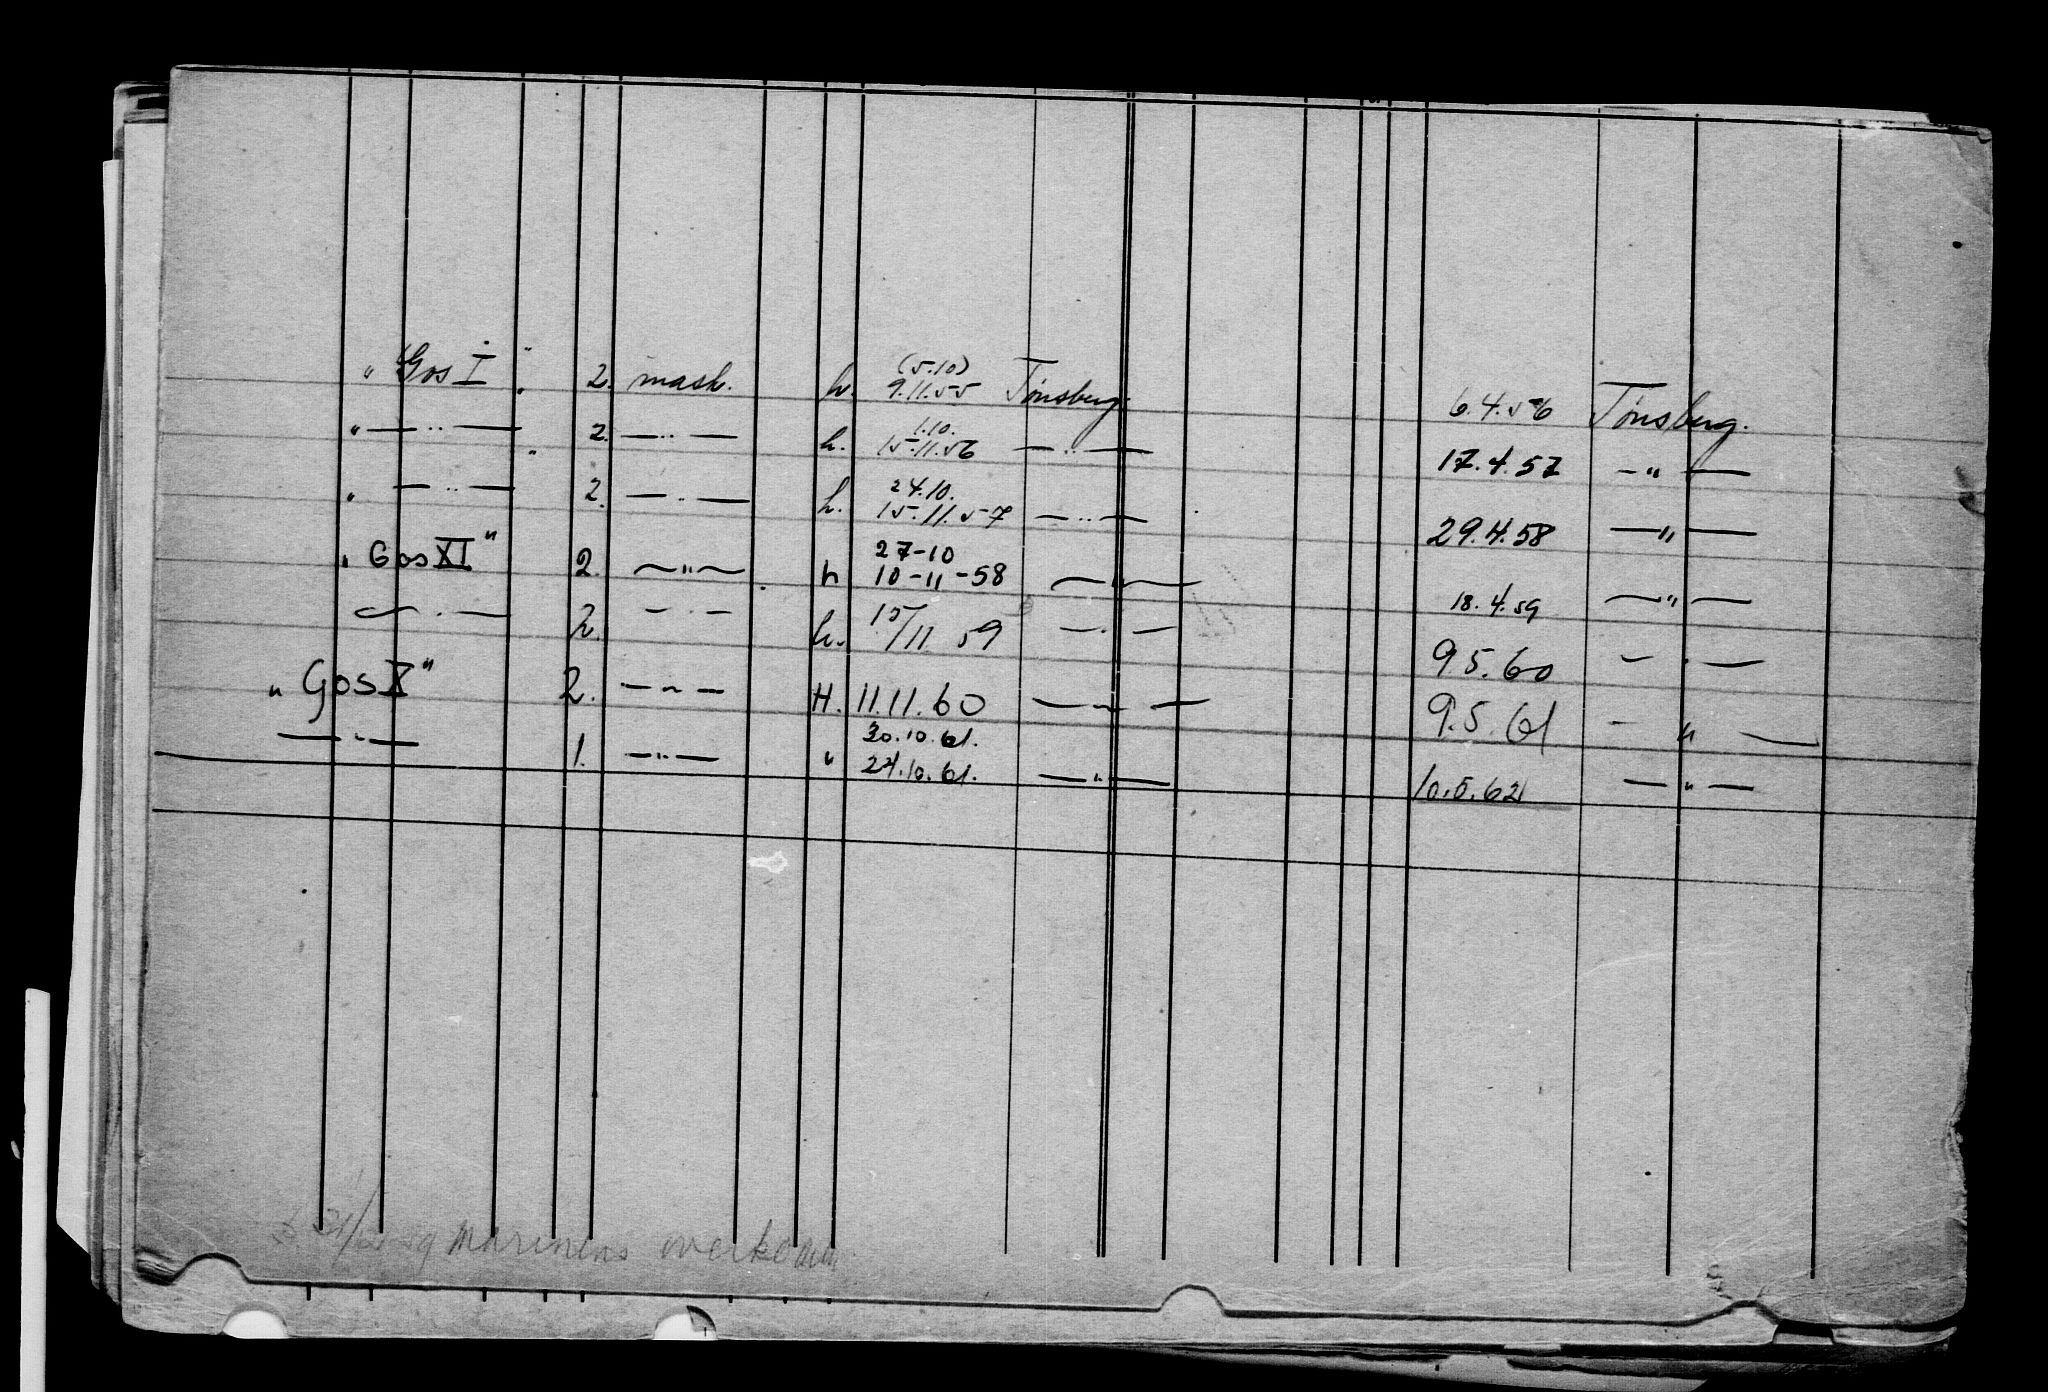 "Gos I" 2. mask. h. (5.10) 9.11.55 Tønsberg. 6.4.56 Tønsberg.
" — " — " 2. — " — h. 1.10. 15.11.56 — " — 17.4.57 — " —
" — " — 2. — " — h. 24.10. 15.11.57 — " — 29.4.58 — " —
"Gos XI" 2. — " — h 27-10 10-11-58 — " — 18.4.59 — " —
— " — 2. — " — h. 15/11 59 — " — 9 5.60 — " —
"Gos X" 2. — " — H. 11.11.60 — " — 9.5.61 — " —
— " — 1. — " — " 30.10.61. 24.10.61. — " — 10.5.62 — " —
59 Marinens overkom